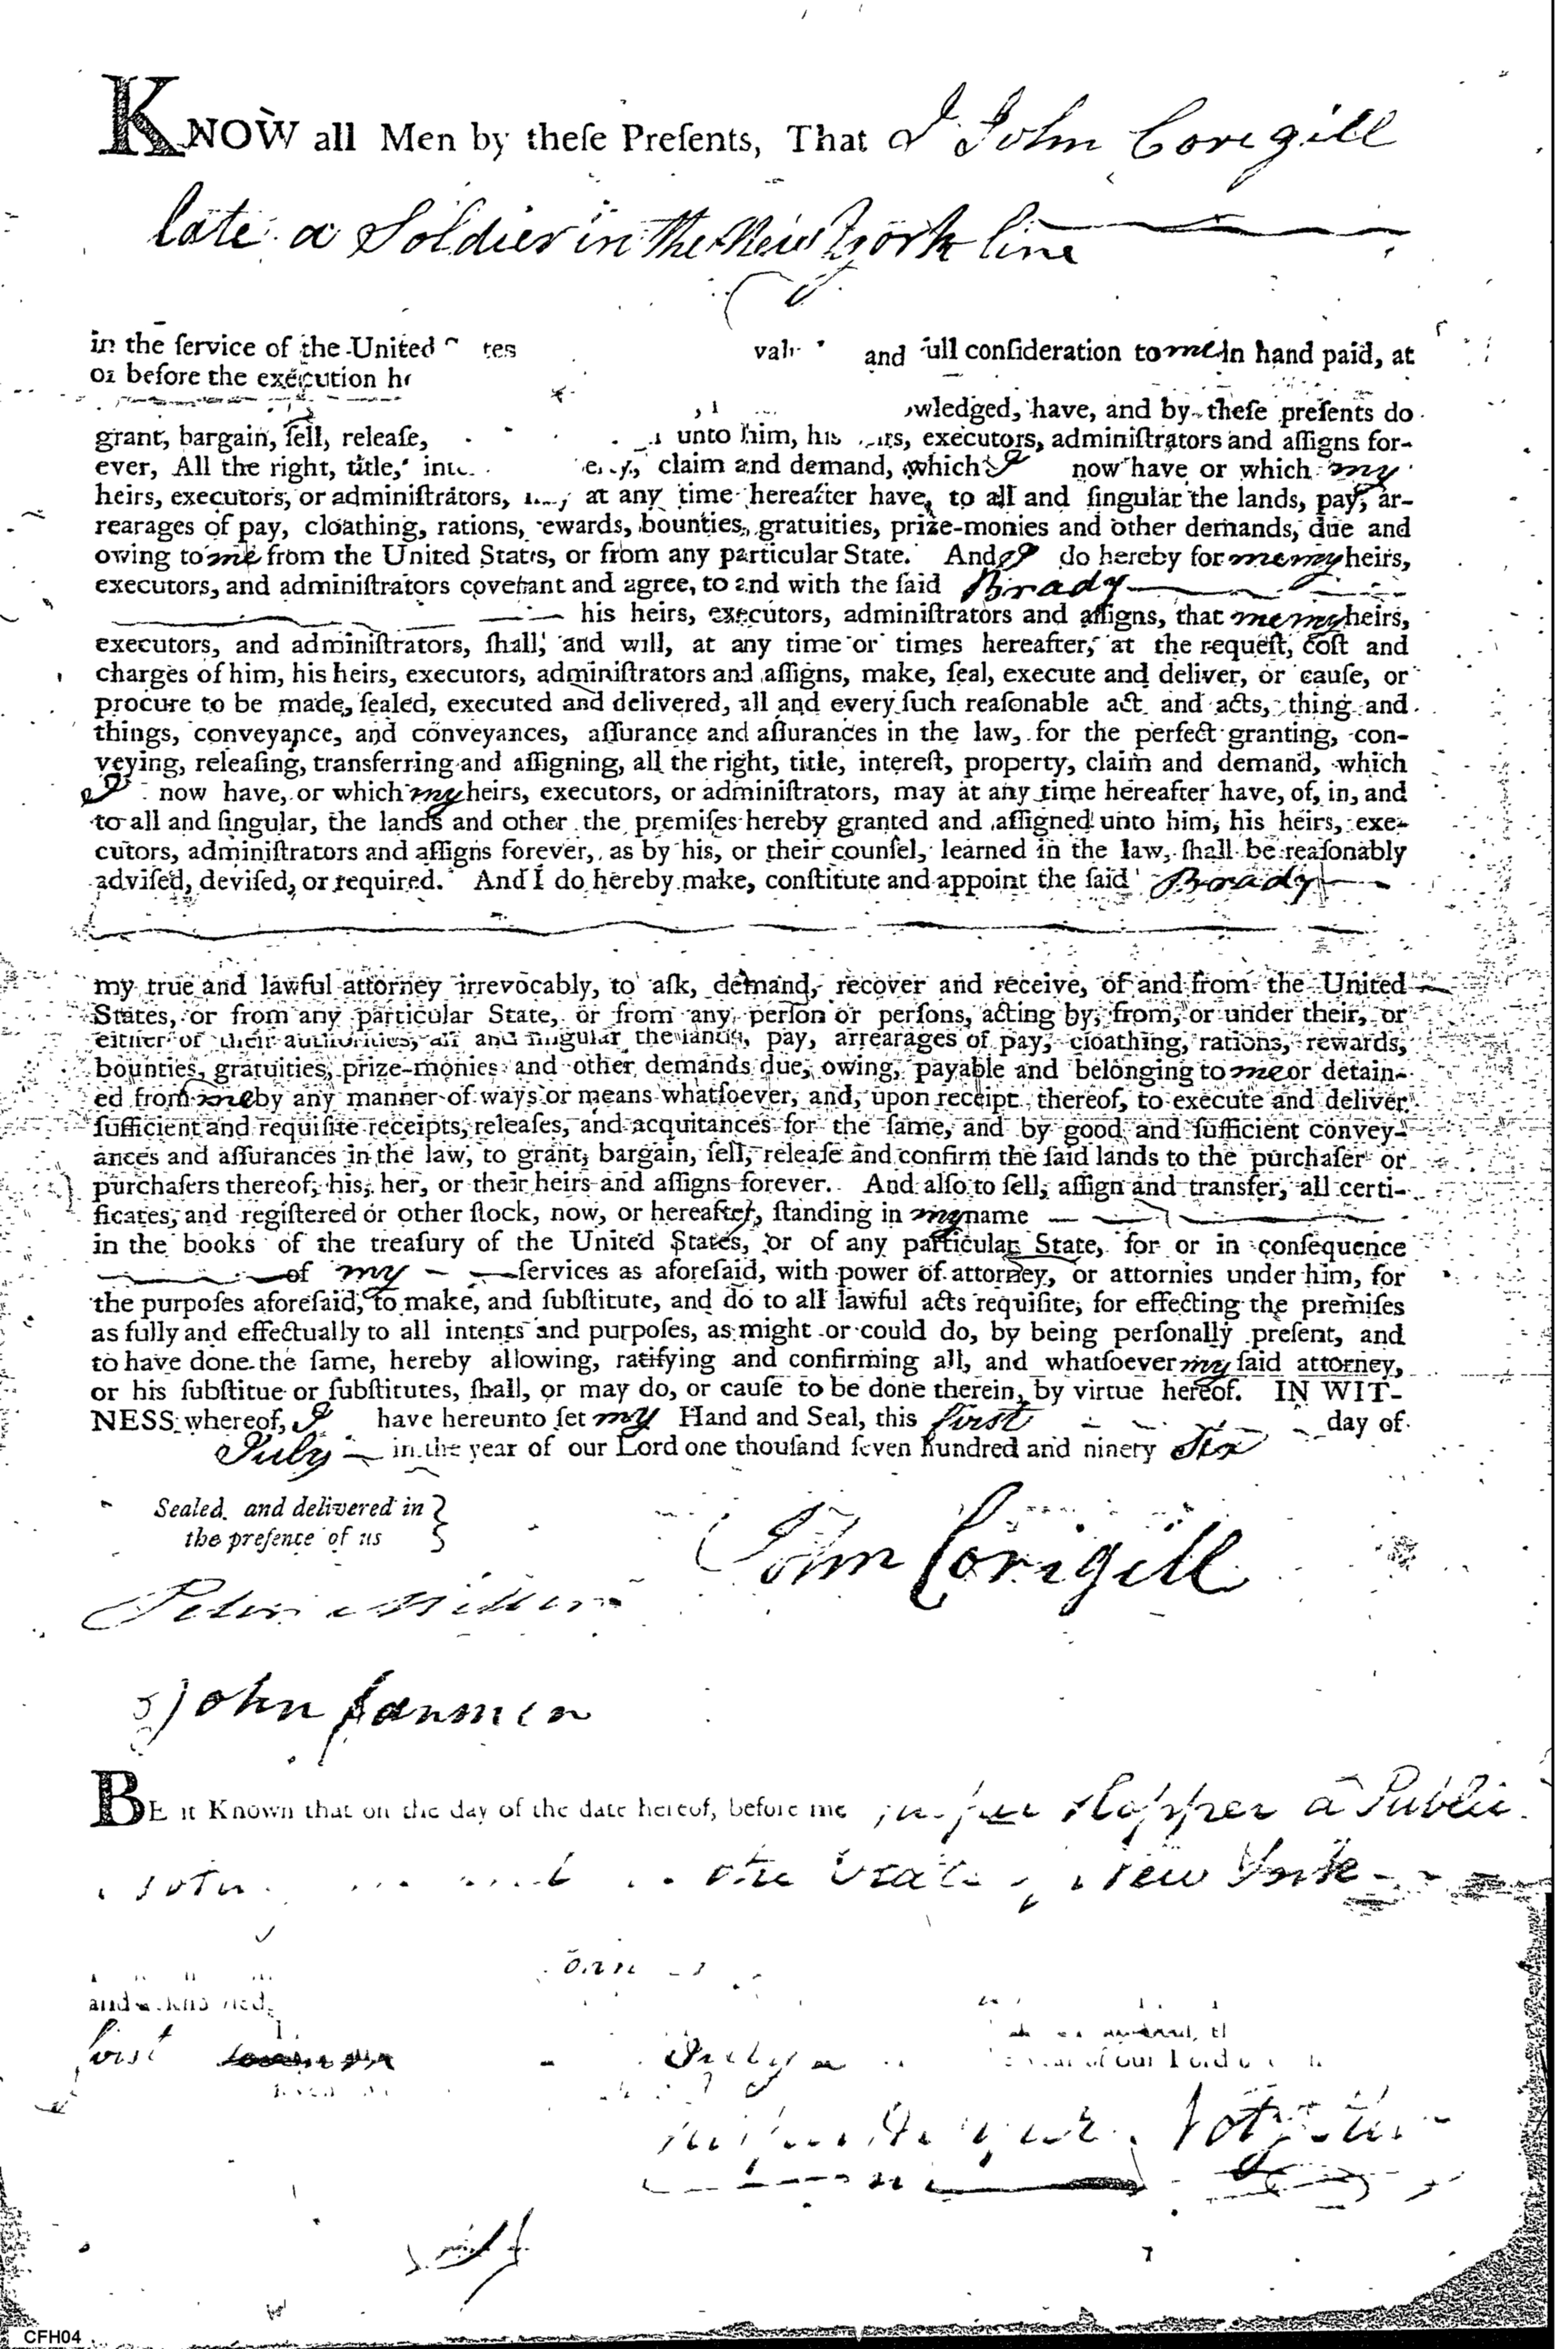 KNOW all Men by theſe Preſents, That I John Corigill
late a Soldier in the New York line
in the ſervice of the United and full conſideration to me in hand paid, at
or before the execution
have, and by theſe preſents do
grant, bargain, ſell, releaſe, unto him, his executors, adminiſtrators and aſſigns for-
ever, All the right, title, claim and demand, which I now have or which my
heirs, executors, or adminiſtrators, at any time hereafter have, to all and ſingular the lands, pay, ar-
rearages of pay, cloathing, rations, rewards, bounties, gratuities, prize-monies and other demands, due and
owing to me from the United States, or from any particular State. And I do hereby for me my heirs,
executors, and adminiſtrators covenant and agree, to and with the ſaid Brady
his heirs, executors, adminiſtrators and aſſigns, that me my heirs,
executors, and adminiſtrators, ſhall, and will, at any time or times hereafter, at the requeſt, coſt and
charges of him, his heirs, executors, adminiſtrators and aſſigns, make, ſeal, execute and deliver, or cauſe, or
procure to be made, ſealed, executed and delivered, all and every ſuch reaſonable act and acts, thing and
things, conveyance, and conveyances, aſſurance and aſſurances in the law, for the perfect granting, con-
veying, releaſing, transferring and aſſigning, all the right, title, intereſt, property, claim and demand, which
I now have, or which my heirs, executors, or adminiſtrators, may at any time hereafter have, of, in, and
to all and ſingular, the lands and other the premiſes hereby granted and aſſigned unto him, his heirs, exe-
cutors, adminiſtrators and aſſigns forever, as by his, or their counſel, learned in the law, ſhall be reaſonably
adviſed, deviſed, or required. And I do hereby make, conſtitute and appoint the ſaid Brady
my true and lawful attorney irrevocably, to aſk, demand, recover and receive, of and from the United
States, or from any particular State, or from any perſon or perſons, acting by, from, or under their, or
either of their authorities, all and ſingular the lands, pay, arrearages of pay, cloathing, rations, rewards,
bounties, gratuities, prize-monies and other demands due, owing, payable and belonging to me or detain-
ed from me by any manner of ways or means whatſoever, and, upon receipt thereof, to execute and deliver
ſufficient and requiſite receipts, releaſes, and acquitances for the ſame, and by good and ſufficient convey-
ances and aſſurances in the law, to grant, bargain, ſell, releaſe and confirm the ſaid lands to the purchaſer or
purchaſers thereof, his, her, or their heirs and aſſigns forever. And alſo to ſell, aſſign and transfer, all certi-
ficates, and regiſtered or other ſtock, now, or hereafter, ſtanding in my name
in the books of the treaſury of the United States, or of any particular State, for or in conſequence
of my ſervices as aforeſaid, with power of attorney, or attornies under him, for
the purpoſes aforeſaid, to make, and ſubſtitute, and do to all lawful acts requiſite, for effecting the premiſes
as fully and effectually to all intents and purpoſes, as might or could do, by being perſonally preſent, and
to have done the ſame, hereby allowing, ratifying and confirming all, and whatſoever my ſaid attorney,
or his ſubſtitue or ſubſtitutes, ſhall, or may do, or cauſe to be done therein, by virtue hereof. IN WIT-
NESS whereof, I have hereunto ſet my Hand and Seal, this first day of
July in the year of our Lord one thouſand ſeven hundred and ninety Six
Sealed and delivered in
the preſence of us
John Corigill
John Janmen
BE it Known that on the day of the date hereof, before me Hopper a Public
the State of New York
and
first July
of our Lord
CFH04